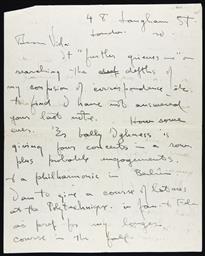 48 Langham St
London. W
Dear Vida
It "further grieves me" on
searching the depths of
my confusion of correspondence etc.
to find I have not answered
your last note. How come
ever. Es bally Ugliness is
giving four concerts in a row
plus private engagements.
& a philharmonic in Berlin
I am to give a course of lectures
at the Polytechnic. in Jan & Feb
as pref for my longer
course in the fall.